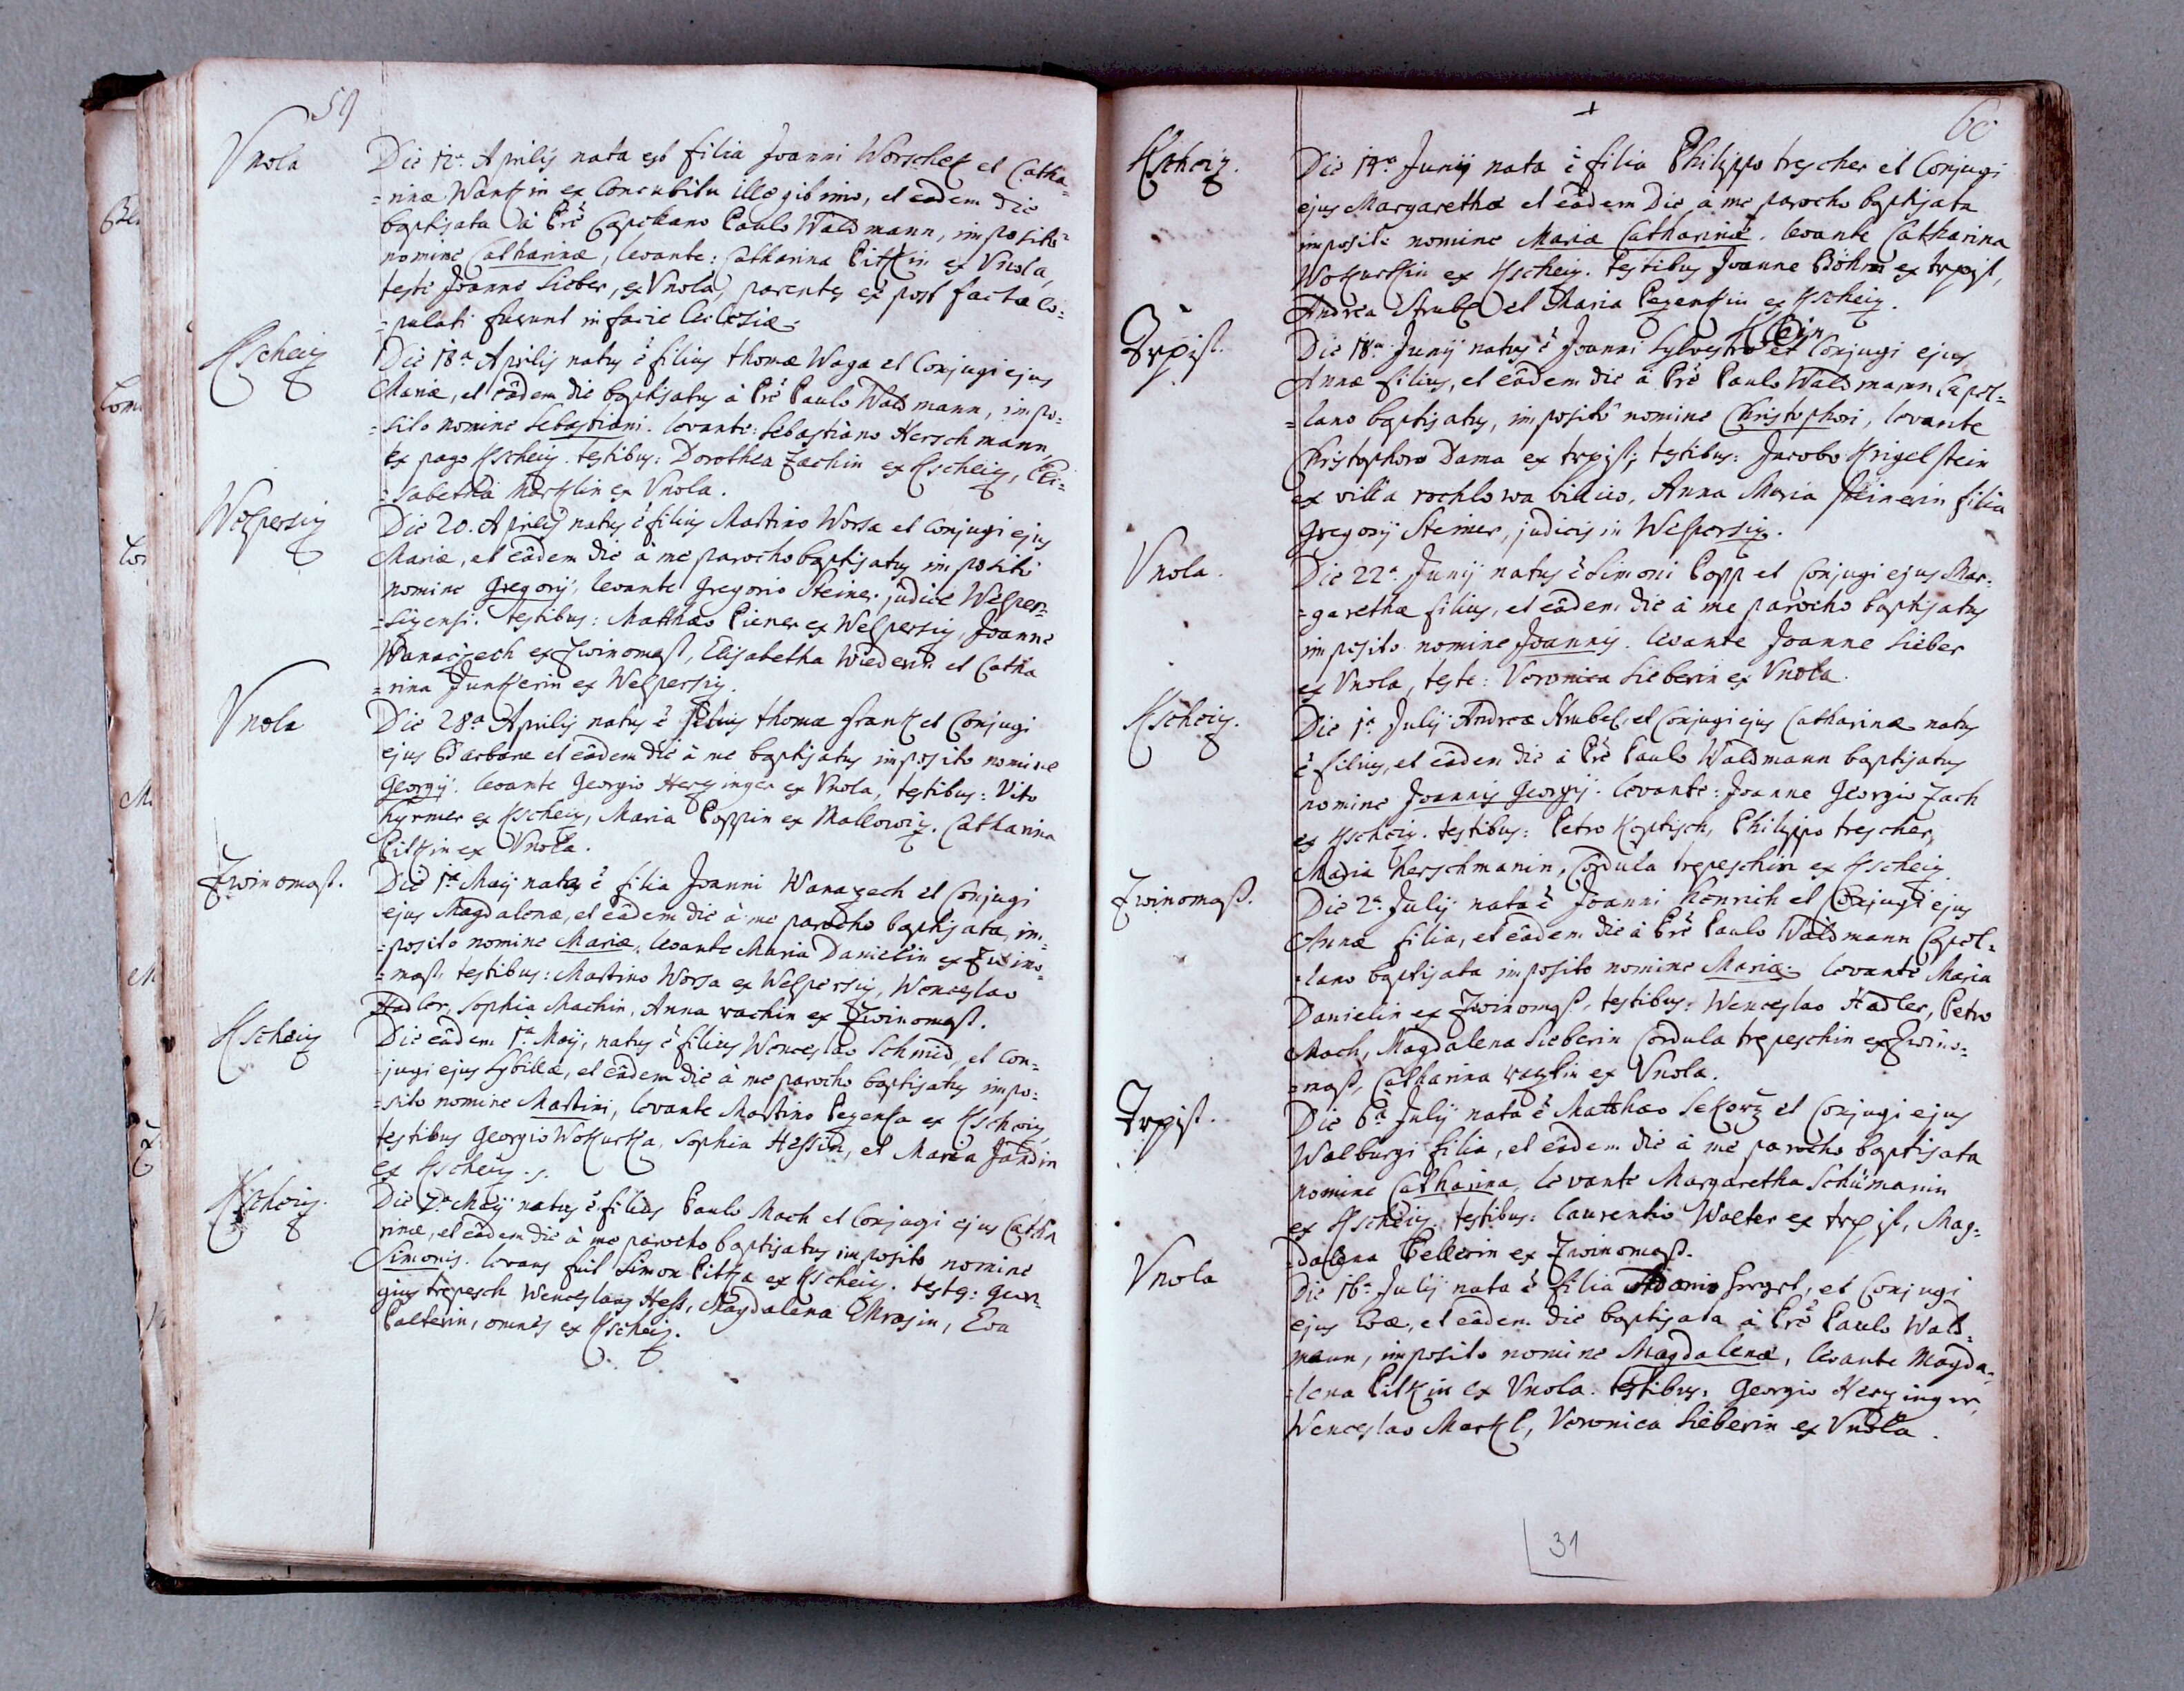 59
Vnola
Die 12ª Aprilis nata est filia Joanni Worschek et Catha=
=rinæ Wankin ex Concubitu illegitimo, et eâdem die
baptisata à Prê Capellano Paulo Waldmann, imposito
nomine Catharinæ, levante: Catharina Pitkin ex Vnola,
teste Joanne Lieber, ex Vnola, parentes ex post facta co=
=pulati fuerunt in facie Ecclesiæ.
Kscheiz
Die 18ª Aprilis natus ê filius thomæ Waga et Conjugi ejus
Mariæ, et eâdem die baptisatus à Prê Paulo Waldmann, impo=
=sito nomine Sebastiani. levante: Sebastiano Herschmann
ex pago Kscheiz. testibus: Dorothea Zachin ex Kscheiz, Eli=
=sabetha Marklin ex Vnola.
Welpersiz
Die 20. Aprilis natus ê filius Martino Worsa et Conjugi ejus
Mariæ, et eâdem die à me parocho baptisatus imposito
nomine Gregorij, levante Gregorio Steiner judice Welper=
=sizensi. testibus: Matthæo Piener ex Welpersiz, Joanne
Wanaczech ex Zwinomast, Elisabetha Wiederin et Catha
=rina Junkerin ex Welpersiz.
Vnola
Die 28ª Aprilis natus ê filius thomæ frank et Conjugi
ejus Barbaræ et eâdem die à me baptisatus imposito nomine
Georgij. levante Georgio Herzinger ex Vnola, testibus: Vito
hyrmer ex Kscheiz, Maria Poppin ex Mallowiz. Catharina
Pitkin ex Vnola.
Zwinomast.
Die 1ª Maij nata ê filia Joanni Wanazech et Conjugi
ejus Magdalenæ, et eâdem die à me parocho baptisata, im=
=posito nomine Mariæ, levante Maria Danielin ex Zwino=
=mast, testibus: Martino Worsa ex Welpersiz, Wenceslao
Hadler, Sophia Machin, Anna wachin ex Zwinomast.
Kscheiz
Die eâdem 1ª Maij, natus ê filius Wenceslao Schmid, et Con=
=jugi ejus Sybillæ, et eâdem die à me parocho baptisatus impo=
=sito nomine Martini, levante Martino Pezenka ex Kscheiz,
testibus Georgio Wokurka, Sophia Hessin, et Maria Jandin
ex Kscheiz.
Kscheiz.
Die 7ª Maij natus ê filius Paulo Mach et Conjugi ejus Catha
rinæ, et eâdem die à me parocho baptisatus imposito nomine
Simonis. levans fuit Simon Pitka ex Kscheiz. testes: Geor=
gius trepesch Wenceslaus Hess, Magdalena Chrasin, Eva
Palterin, omnes ex Kscheiz.
60
Kscheiz.
Die 14ª Junij nata ê filia Philippo trescher et Conjugi
ejus Margarethæ et eâdem Die à me parocho baptisata
imposito nomine Mariæ Catharinæ. levante Catharina
Wokurkin ex Kscheiz. testibus Joanne Böhm ex trpist,
Andrea Strubl et Maria Pezenkin ex Kscheiz.
Trpist.
Klein
Die 18ª Junij natus ê Joanni Sylvestro et Conjugi ejus
Annæ filius, et eâdem die à Prê Paulo Waldmann Capel=
=lano baptisatus, imposito nomine Christophori, levante
Christophoro Dama ex trpist; testibus: Jacobo Krigelstein
ex villa rochlowa villico, Anna Maria Steinerin filia
Gregorij Steiner, judicis in Welpersiz.
Vnola.
Die 22ª Junij natus ê Simoni Popp et Conjugi ejus Mar=
=garethæ filius, et eâdem die à me parocho baptisatus
imposito nomine Joannis. levante Joanne Lieber
ex Vnola, teste: Veronica Lieberin ex Vnola.
Kscheiz.
Die 1ª Julij Andreæ Strubel, et Conjugi ejus Catharinæ natus
ê filius, et eâdem die à Prê Paulo Waldmann baptisatus
nomine Joannis Georgij. levante: Joanne Georgio Zach
ex Kscheiz. testibus: Petro Koptisch, Philippo trescher,
Maria Herschmanin, Cordula trepeschin ex Kscheiz.
Zwinomast.
Die 2ª Julij nata ê Joanni Henrich et Conjugi ejus
Annæ filia, et eâdem die à Prê Paulo Waldmann Capel=
=lano baptisata imposito nomine Mariæ. levante Maria
Danielin ex Zwinomast, testibus: Wenceslao Hadler, Petro
Mach, Magdalena Lieberin Cordula trepeschin ex Zwino=
=mast, Catharina wazlin ex Vnola.
Trpist.
Die 6ª Julij nata ê Matthæo Sekorz et Conjugi ejus
Walburgi filia, et eâdem die à me parocho baptisata
nomine Catharina, levante Margaretha Schümanin
ex Kscheiz. testibus: laurentio Walter ex trpist, Mag=
=dalena Pellerin ex Zwinomast.
Vnola
Die 16ª Julij nata ê filia Adamo, et Conjugi
ejus Evæ, et eâdem die baptisata à Prê Paulo Wald=
mann, imposito nomine Magdalenæ, levante Magda=
=lena Pitkin ex Vnola. testibus: Georgio Herzinger,
Wenceslao Markl, Veronica Lieberin ex Vnola.
31